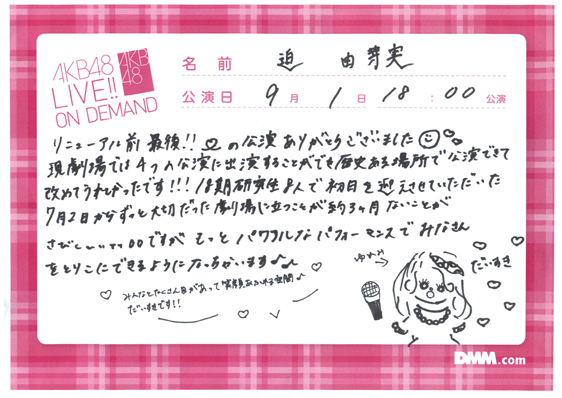 AKB48
LIVE!!
ON DEMAND
AKB
48
名前 迫 由芽実
公演日 9月1日 18:00 公演
リニューアル前 最後!! の公演ありがとうございました
現劇場では4つの公演に出演することができ歴史ある場所で公演できて
改めてうれしかったです!!! 18期研究生8人で初日を迎えさせていただいた
7月2日からずっと大切だった劇場に立つことが約3ヶ月ないことが
さびしいですがもっとパワフルなパフォーマンスでみなさん
をとりこにできるようになっちゃいます♪
みんなとたくさん目があって笑顔あふれる空間♪
だいすきです!!
ゆめみ
だいすき
DMM.com